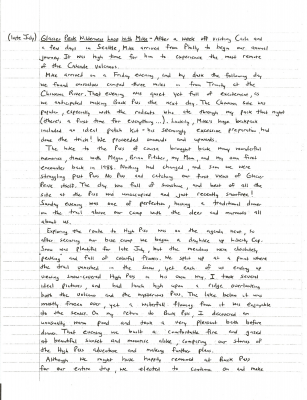 (late July) Glacier Peak Wilderness Loop with Mike - After a week off visiting Carla and
a few days in Seattle, Mike arrived from Philly to begin our annual
journey. It was high time for him to experience the most remote
of the Cascade volcanos.
Mike arrived on a Friday evening, and by dusk the following day
we found ourselves camped three miles in from Trinity at the
Chiwawa River. That evening was quiet yet full of excitement, as
we anticipated making Buck Pass the next day. The Chiwawa site was
popular, especially with the rodents who ate through my pack that night
(there's a first time for everything...). Luckily, Mike's huge backpack
included an ideal patch kit - his seemingly excessive preparation had
done the trick! We proceeded onwards and upwards.
The hike to the Pass of course, brought back many wonderful
memories, times with Megan, Brian Pilcher, my Mom, and my own first
encounter back in 1988. Nothing had changed, and soon we were
struggling past Pass No Pass and catching our first views of Glacier
Peak itself. The day was full of sunshine, and best of all the
site at the Pass was unoccupied and just recently snowfree!
Sunday evening was one of perfection, having a traditional dinner
on the trail above our camp with the deer and marmots all
about us.
Exploring the route to High Pass was on the agenda now, so
after securing our base camp we began a dayhike up Liberty Cap.
Snow was plentiful for late July, but the meadows were absolutely
peaking and full of colorful flowers. We split up at a point where
the trail vanished in the snow, yet each of us ending up
viewing snow-covered High Pass in his own way. I took several
ideal pictures, and had lunch high upon a ridge overlooking
both the volcano and the mysterious pass. The lake below it was
mostly frozen over, yet a waterfall flowing from it was enjoyable
to the senses. On my return to Buck Pass I discovered an
unusually warm pond and took a very pleasant bath before
dinner. That evening we built a comfortable fire and gazed
at beautiful sunset and moonrise alike, comparing our stories of
the High Pass adventure and making further plans.
Although we might have happily remained at Buck Pass
for our entire trip, we elected to continue on and make